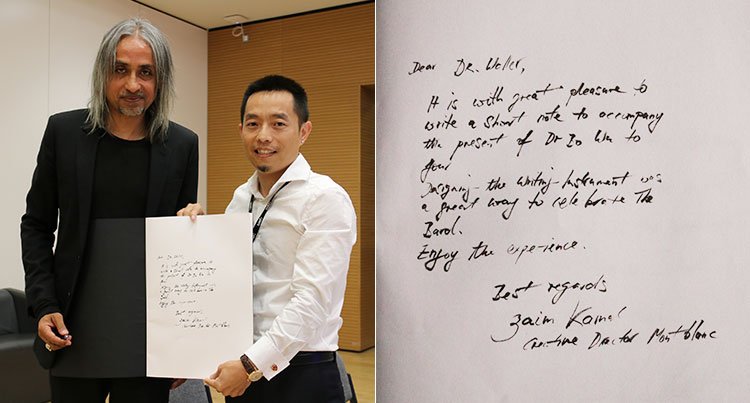 Dear Dr. Waller,
It is with great pleasure to
write a short note to accompany
this present of Dr Bo Lin to
you.
Designing the writing-Instrument was
a great way to celebrate The
Bard.
Enjoy the experience.
Best regards
Zaim Kamal
Creative Director Montblanc